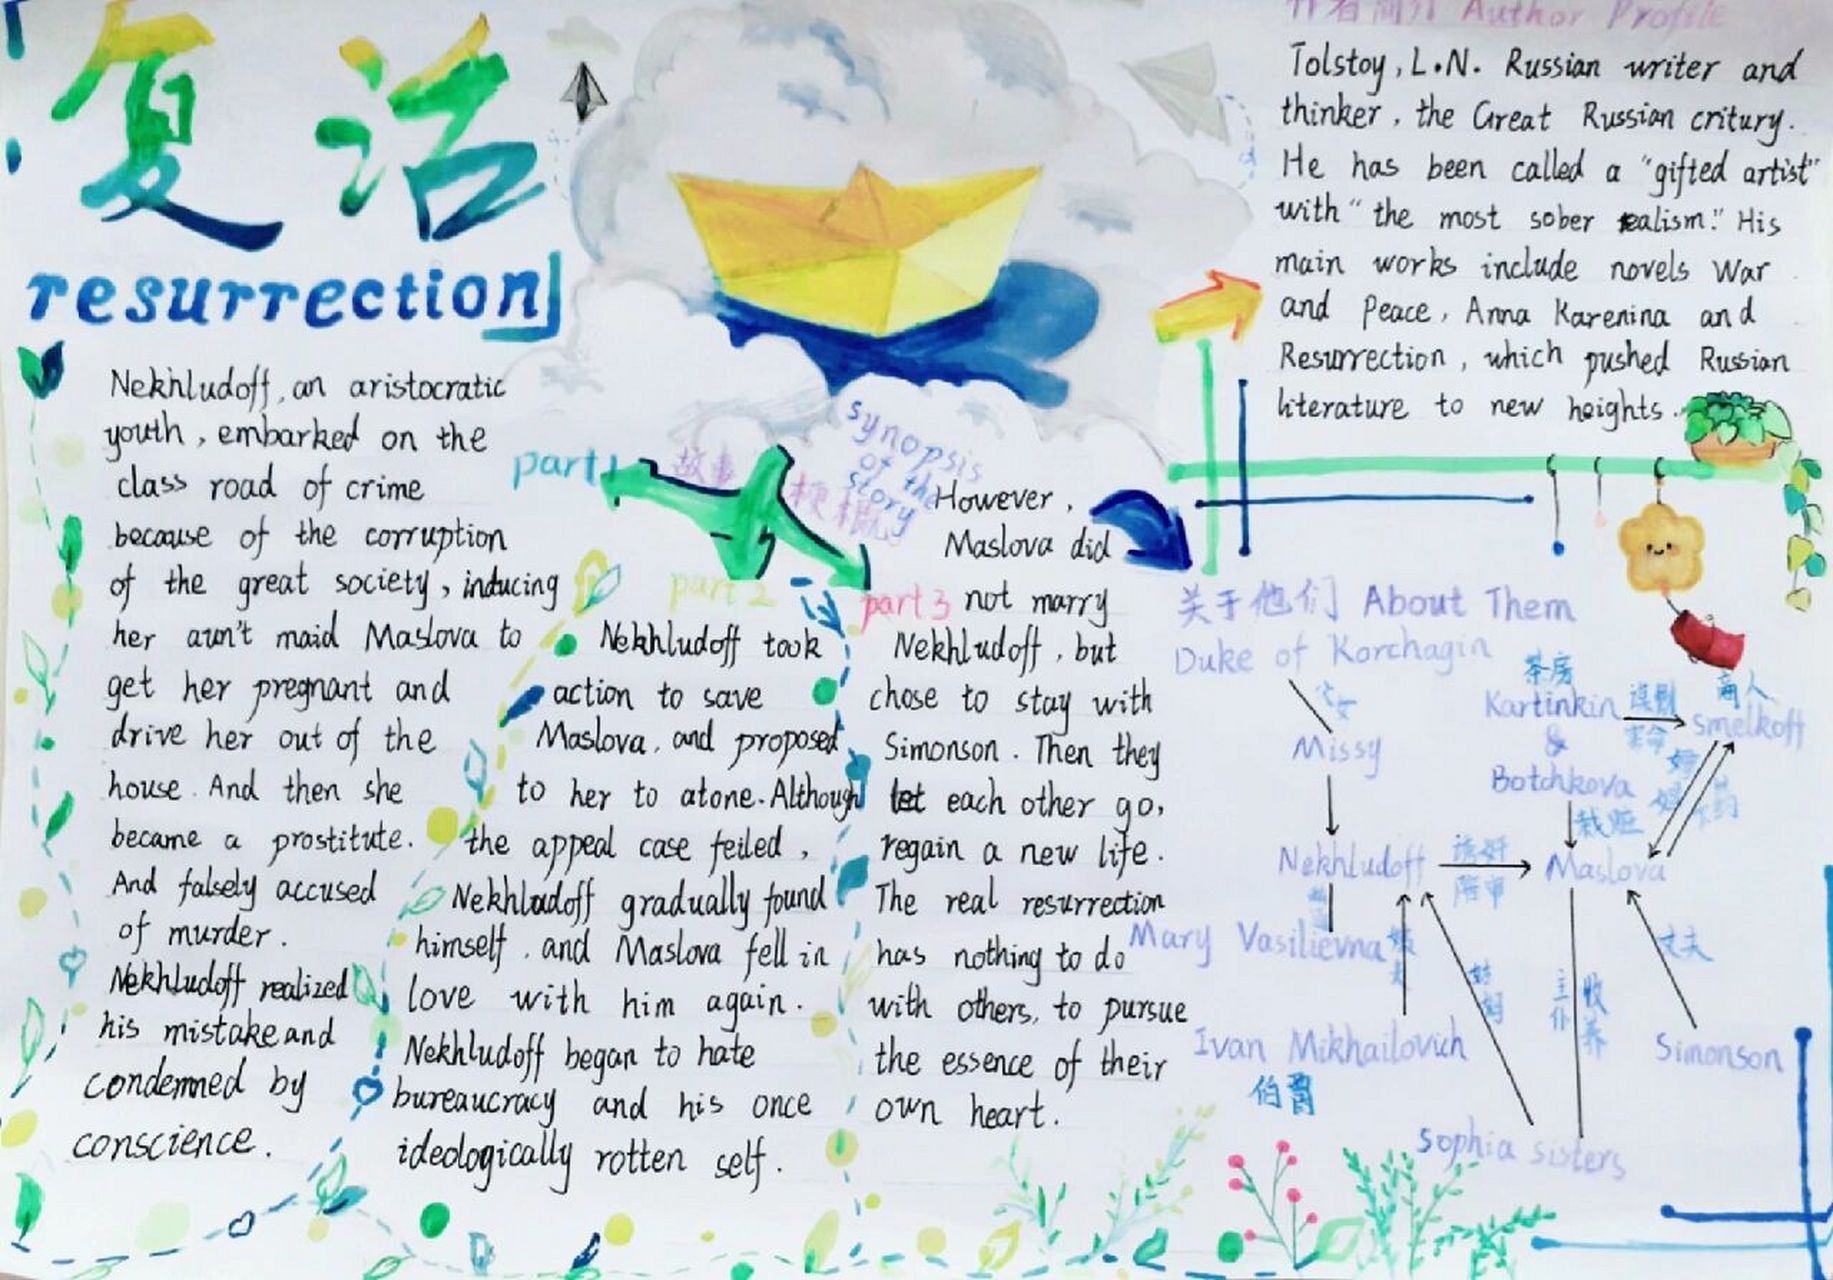 复活
resurrection
Nekhludoff, an aristocratic
youth, embarked on the
class road of crime
because of the corruption
of the great society, inducing
her aun't maid Maslova to
get her pregnant and
drive her out of the
house. And then she
became a prostitute.
And falsely accused
of murder.
Nekhludoff realized
his mistake and
condemned by
conscience.
故事梗概
synopsis
of the
story
part 1
part 2
Nekhludoff took
action to save
Maslova, and proposed
to her to atone. Although
the appeal case feiled,
Nekhludoff gradually found
himself, and Maslova fell in
love with him again.
Nekhludoff began to hate
bureaucracy and his once
ideologically rotten self.
part 3
However,
Maslova did
not marry
Nekhludoff, but
chose to stay with
Simonson. Then they
let each other go,
regain a new life.
The real resurrection
has nothing to do
with others, to pursue
the essence of their
own heart.
作者简介 Author Profile
Tolstoy, L.N. Russian writer and
thinker, the Great Russian critury.
He has been called a "gifted artist"
with "the most sober realism." His
main works include novels War
and Peace, Anna Karenina and
Resurrection, which pushed Russian
literature to new heights.
关于他们 About Them
Duke of Korchagin
父女
Missy
茶房
Kartinkin
&
Botchkova
谋财
害命
商人
smelkoff
栽赃
Nekhludoff
陪审
Maslova
Mary Vasilievna
Ivan Mikhailovich
伯爵
姑妈
主仆
收养
丈夫
Simonson
Sophia sisters